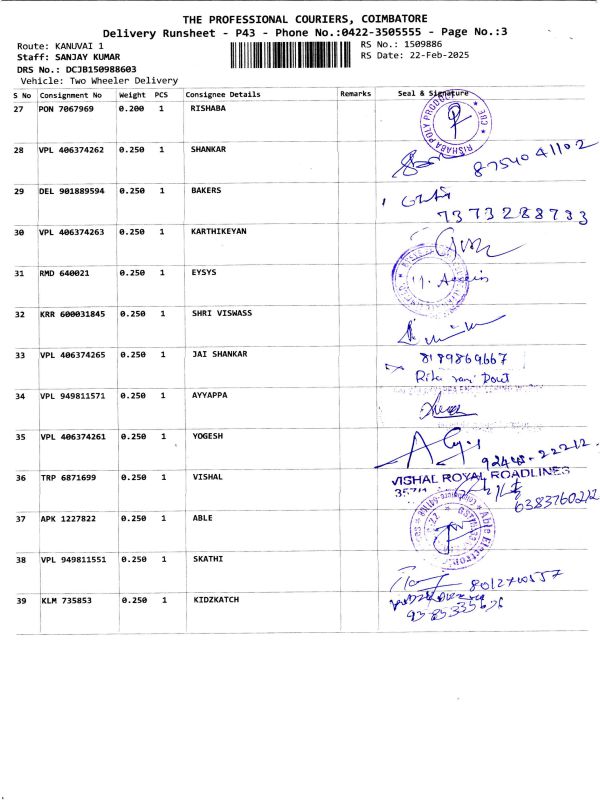 THE PROFESSIONAL COURIERS, COIMBATORE
Delivery Runsheet - P43 - Phone No.:0422-3505555 - Page No.:3
Route: KANUVAI 1 RS No.: 1509886
Staff: SANJAY KUMAR RS Date: 22-Feb-2025
DRS No.: DCJB150988603
Vehicle: Two Wheeler Delivery
S No Consignment No Weight PCS Consignee Details Remarks Seal & Signature
27 PON 7067969 0.200 1 RISHABA
RISHABA POLY PRODUC ★ CBE ★
28 VPL 406374262 0.250 1 SHANKAR
8754041102
29 DEL 901889594 0.250 1 BAKERS
7373288733
30 VPL 406374263 0.250 1 KARTHIKEYAN
31 RMD 640021 0.250 1 EYSYS
32 KRR 600031845 0.250 1 SHRI VISWASS
33 VPL 406374265 0.250 1 JAI SHANKAR 8189869667
34 VPL 949811571 0.250 1 AYYAPPA
35 VPL 406374261 0.250 1 YOGESH
36 TRP 6871699 0.250 1 VISHAL VISHAL ROYAL ROADLINES
6383760212
37 APK 1227822 0.250 1 ABLE
Able Electronic
38 VPL 949811551 0.250 1 SKATHI
39 KLM 735853 0.250 1 KIDZKATCH